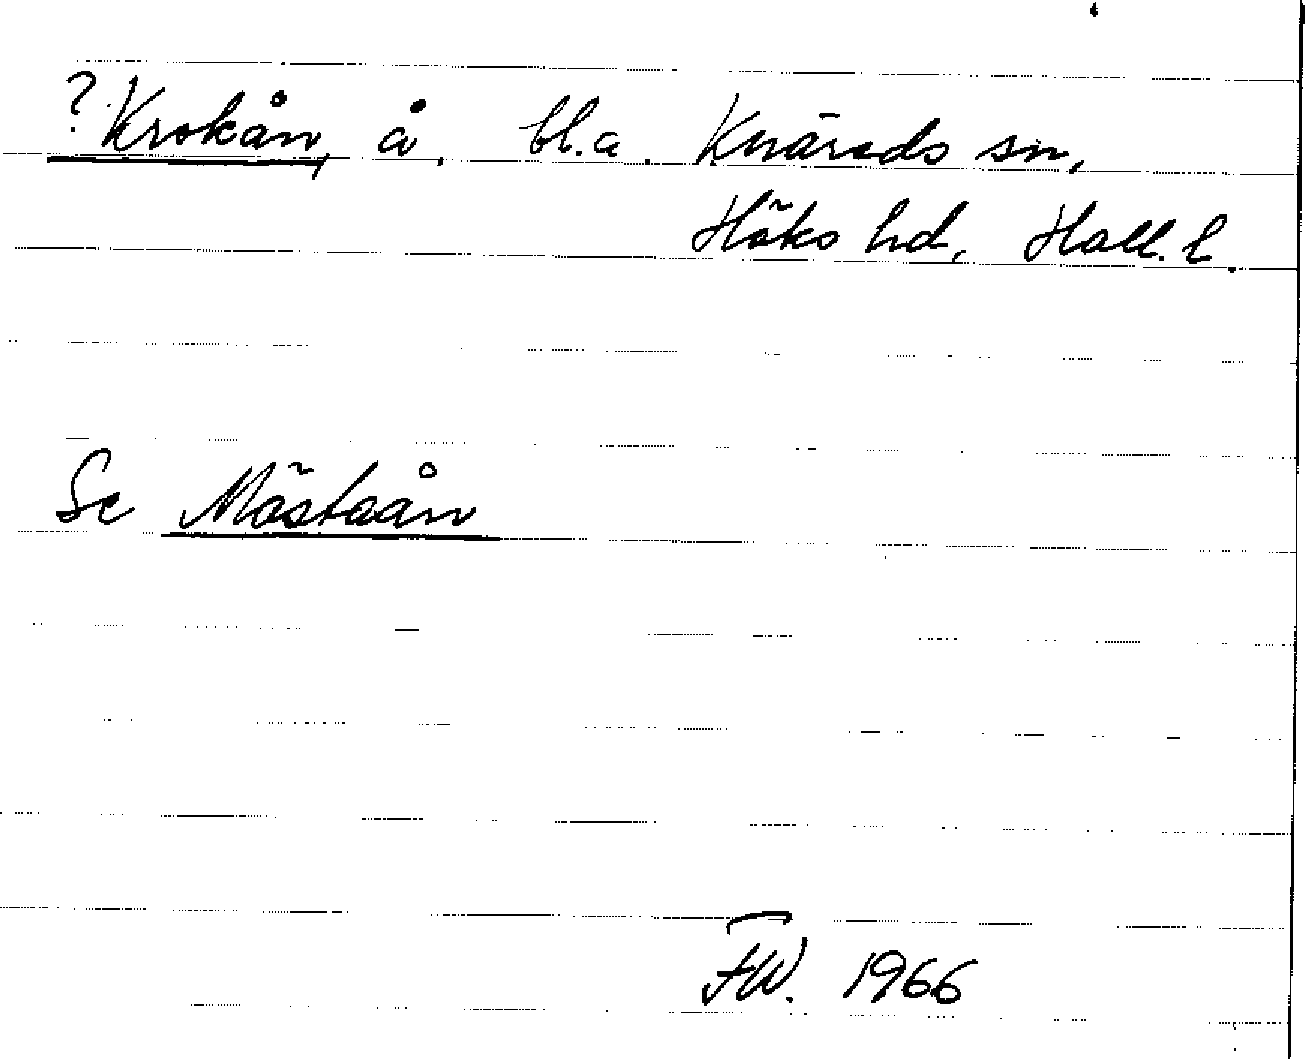 ?Krokån, å, bl.a. Knäreds sn,
Höks hd, Hall. l.
Se Mästaån
FW. 1966